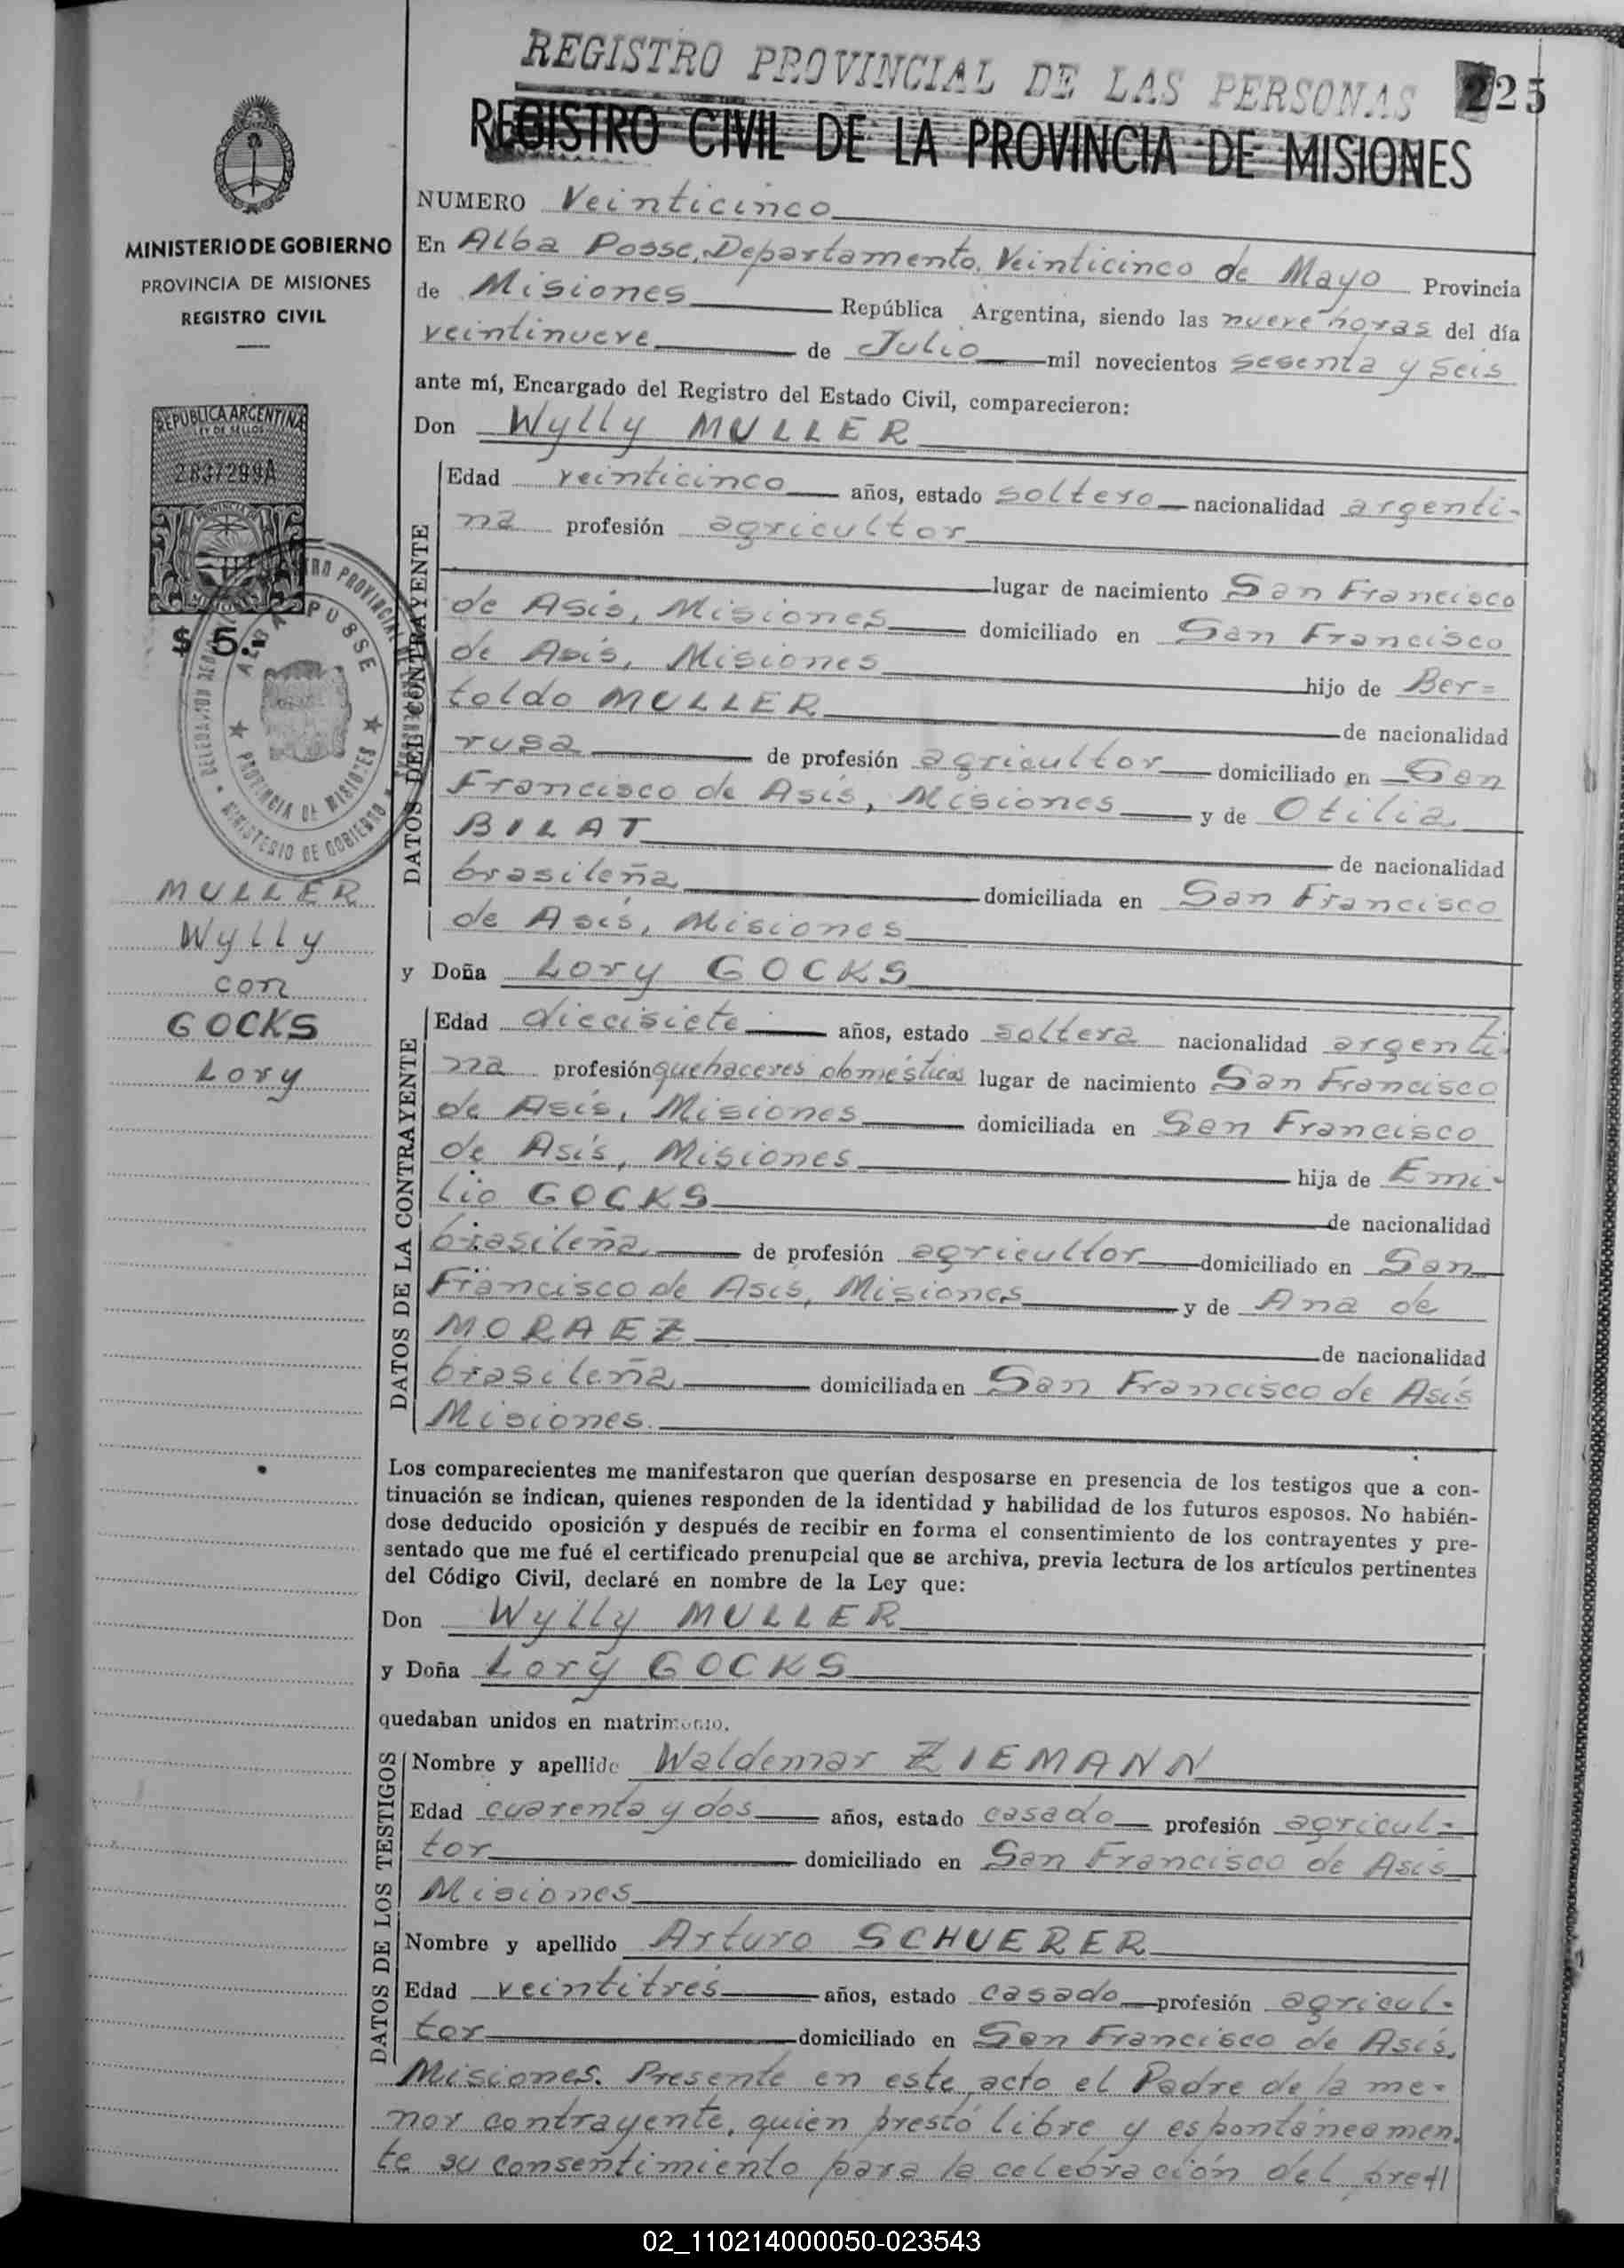 REGISTRO PROVINCIAL DE LAS PERSONAS
225
REGISTRO CIVIL DE LA PROVINCIA DE MISIONES
MINISTERIO DE GOBIERNO
PROVINCIA DE MISIONES
REGISTRO CIVIL
REPUBLICA ARGENTINA
LEY DE SELLOS
2837299A
PROVINCIA DE
MISIONES
$ 5.-
ALBA POSSE
PROVINCIA DE MISIONES
MINISTERIO DE GOBIERNO
MULLER
Wylly
con
GOCKS
Lory
NUMERO Veinticinco
En Alba Posse, Departamento, Veinticinco de Mayo Provincia
de Misiones República Argentina, siendo las nueve horas del día
veintinueve de Julio mil novecientos sesenta y seis
ante mí, Encargado del Registro del Estado Civil, comparecieron:
Don Wylly MULLER
DATOS DEL CONTRAYENTE
Edad veinticinco años, estado soltero nacionalidad argenti-
na profesión agricultor
lugar de nacimiento San Francisco
de Asís, Misiones domiciliado en San Francisco
de Asís, Misiones hijo de Ber=
toldo MULLER de nacionalidad
rusa de profesión agricultor domiciliado en San
Francisco de Asís, Misiones y de Otilia
BILAT de nacionalidad
brasileña domiciliada en San Francisco
de Asís, Misiones
y Doña Lory GOCKS
DATOS DE LA CONTRAYENTE
Edad diecisiete años, estado soltera nacionalidad argenti-
na profesión quehaceres domésticos lugar de nacimiento San Francisco
de Asís, Misiones domiciliada en San Francisco
de Asís, Misiones hija de Emi-
lio GOCKS de nacionalidad
brasileña de profesión agricultor domiciliado en San
Francisco de Asís, Misiones y de Ana de
MORAEZ de nacionalidad
brasileña domiciliada en San Francisco de Asís
Misiones.
Los comparecientes me manifestaron que querían desposarse en presencia de los testigos que a con-
tinuación se indican, quienes responden de la identidad y habilidad de los futuros esposos. No habién-
dose deducido oposición y después de recibir en forma el consentimiento de los contrayentes y pre-
sentado que me fué el certificado prenupcial que se archiva, previa lectura de los artículos pertinentes
del Código Civil, declaré en nombre de la Ley que:
Don Wylly MULLER
y Doña Lory GOCKS
quedaban unidos en matrimonio.
DATOS DE LOS TESTIGOS
Nombre y apellido Waldemar ZIEMANN
Edad cuarenta y dos años, estado casado profesión agricul-
tor domiciliado en San Francisco de Asís
Misiones
Nombre y apellido Arturo SCHUERER
Edad veintitrés años, estado casado profesión agricul-
tor domiciliado en San Francisco de Asís,
Misiones. Presente en este acto el Padre de la me-
nor contrayente, quien prestó libre y espontáneamen-
te su consentimiento para la celebración del pre-//
02_110214000050-023543